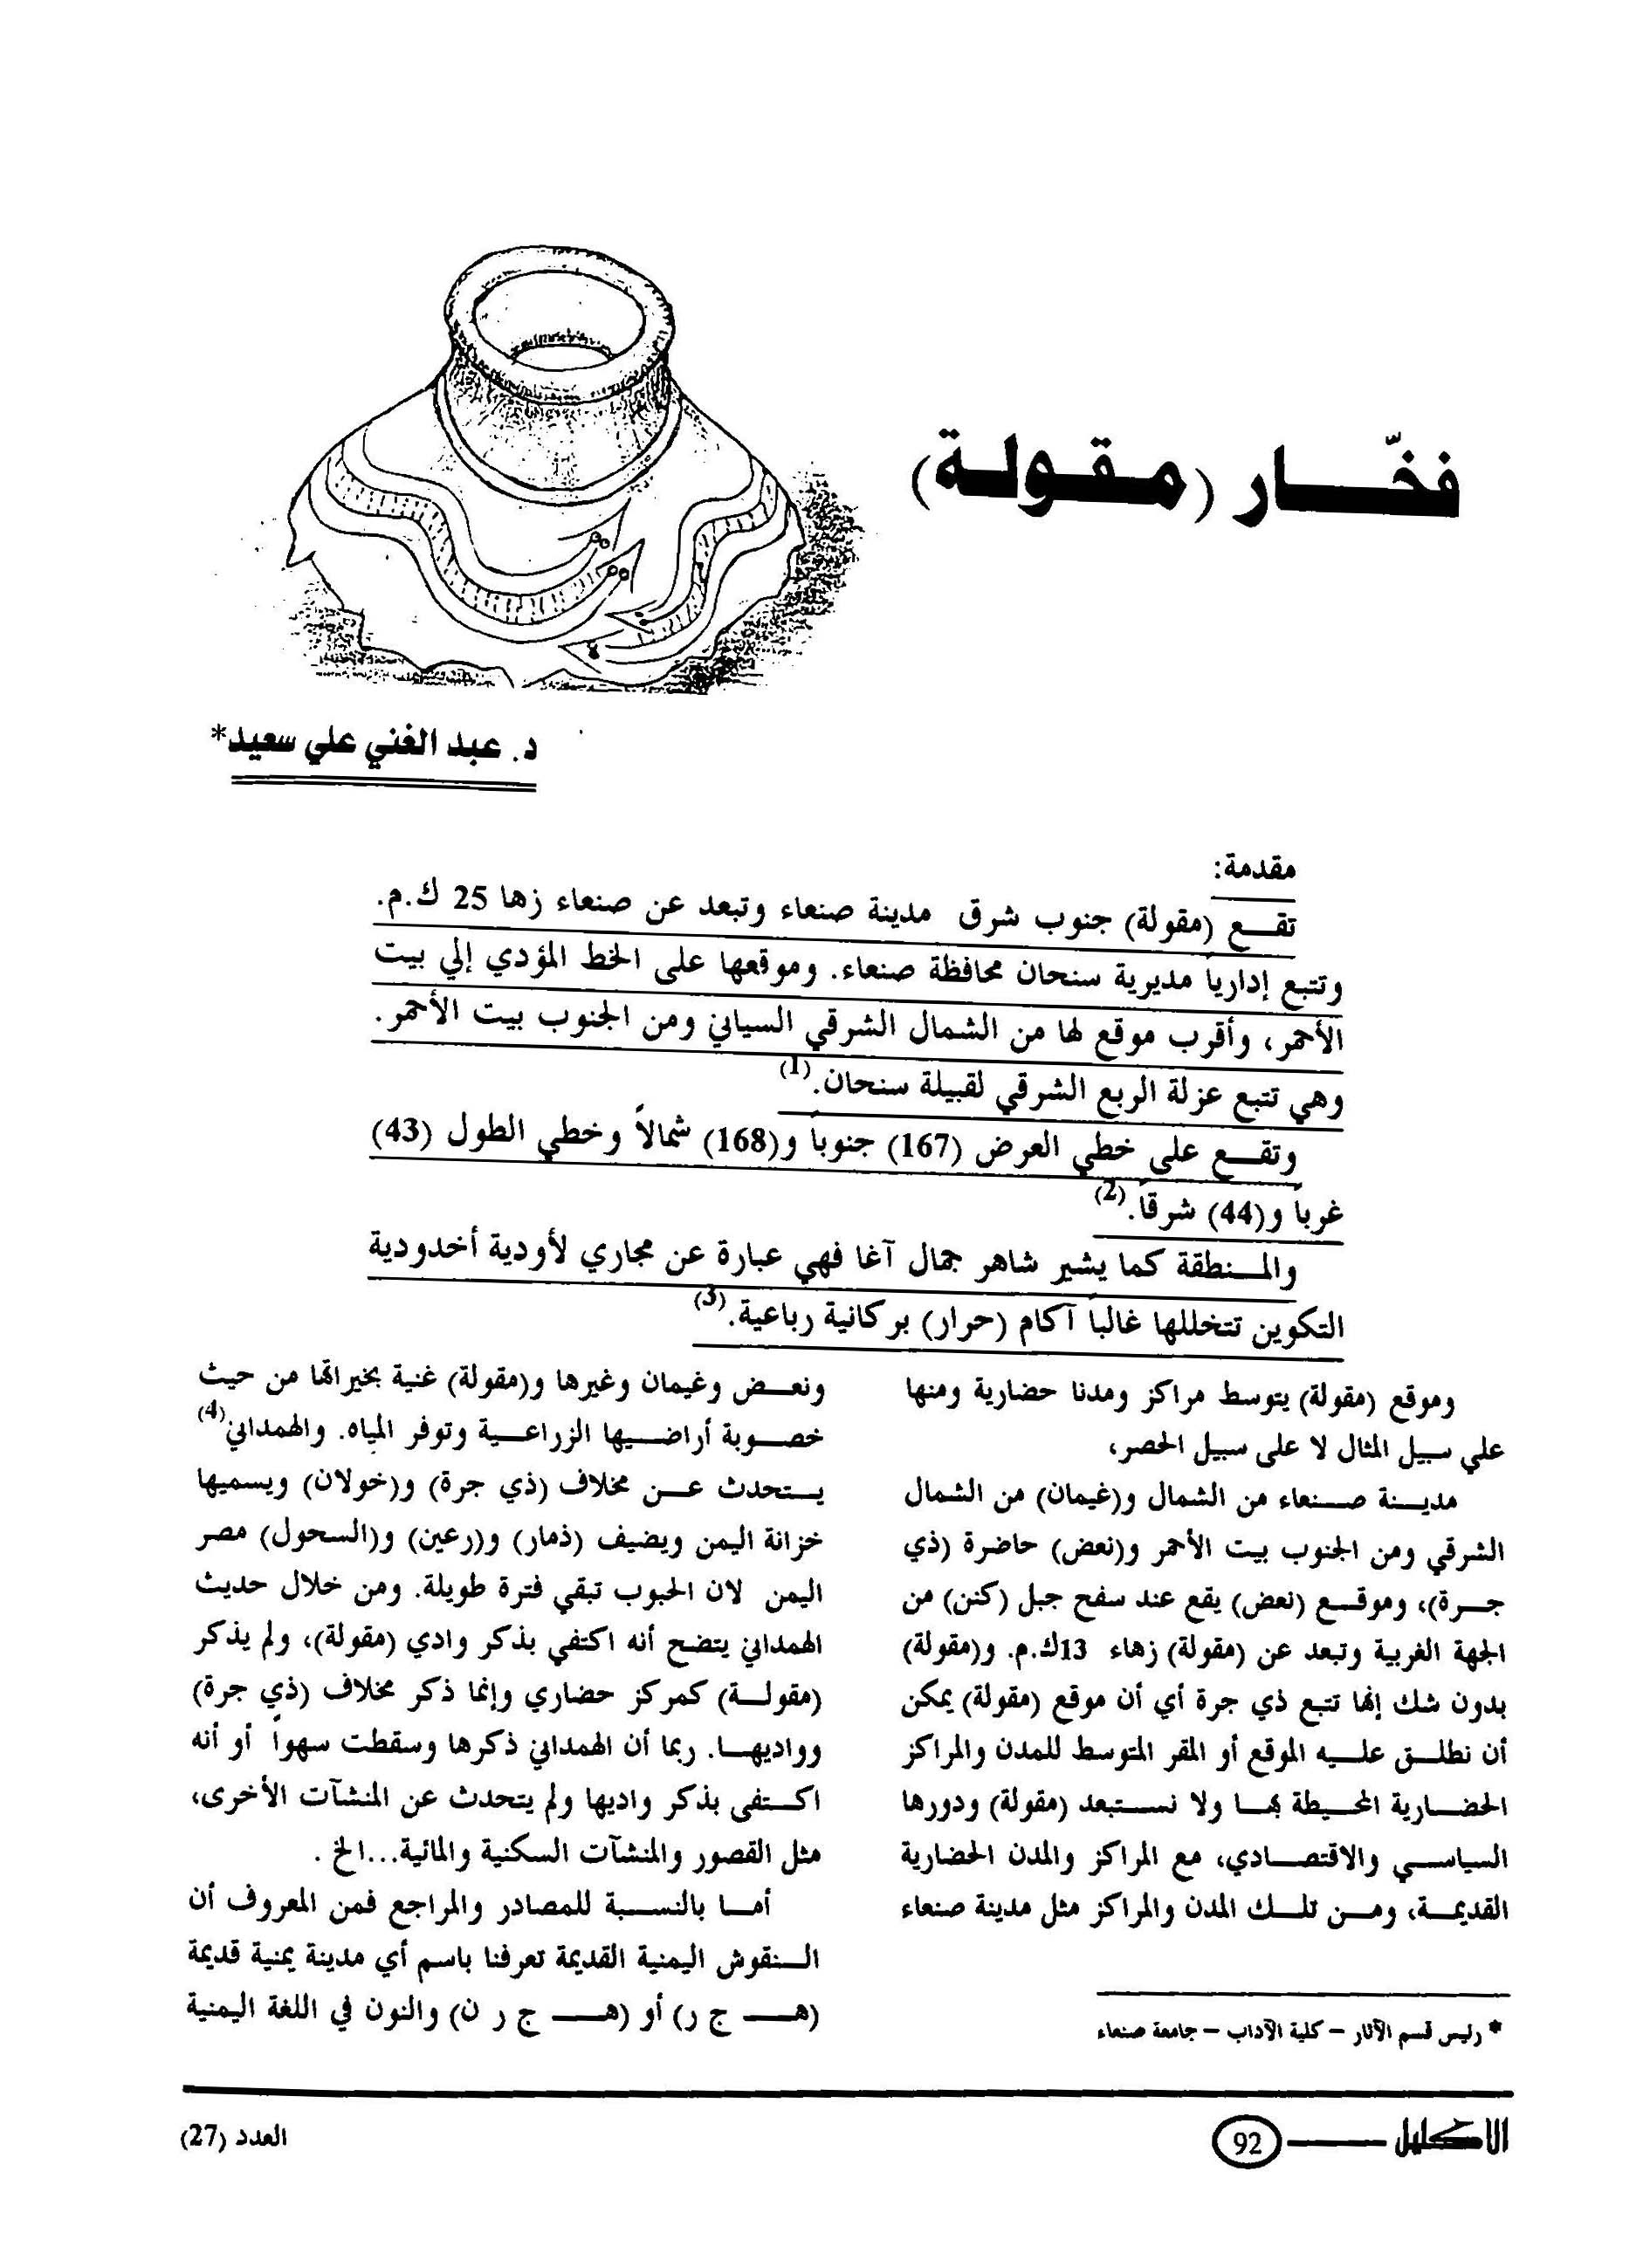 فخّار (مقولة)
د. عبد الغني علي سعيد*
مقدمة:
تقع (مقولة) جنوب شرق مدينة صنعاء وتبعد عن صنعاء زها 25 ك.م.
وتتبع إدارياً مديرية سنحان محافظة صنعاء. وموقعها على الخط المؤدي إلي بيت
الأحمر، وأقرب موقع لها من الشمال الشرقي السياني ومن الجنوب بيت الأحمر.
وهي تتبع عزلة الربع الشرقي لقبيلة سنحان.(1)
وتقع على خطي العرض (167) جنوباً و(168) شمالاً وخطي الطول (43)
غرباً و(44) شرقاً.(2)
والمنطقة كما يشير شاهر جمال آغا فهي عبارة عن مجاري لأودية أخدودية
التكوين تتخللها غالباً آكام (حرار) بركانية رباعية.(3)
وموقع (مقولة) يتوسط مراكز ومدنا حضارية ومنها
علي سبيل المثال لا على سبيل الحصر،
مدينة صنعاء من الشمال و(غيمان) من الشمال
الشرقي ومن الجنوب بيت الأحمر و(نعض) حاضرة (ذي
جرة)، وموقع (نعض) يقع عند سفح جبل (كنن) من
الجهة الغربية وتبعد عن (مقولة) زهاء 13ك.م. و(مقولة)
بدون شك إنها تتبع ذي جرة أي أن موقع (مقولة) يمكن
أن نطلق عليه الموقع أو المقر المتوسط للمدن والمراكز
الحضارية المحيطة بها ولا نستبعد (مقولة) ودورها
السياسي والاقتصادي، مع المراكز والمدن الحضارية
القديمة، ومن تلك المدن والمراكز مثل مدينة صنعاء
* رئيس قسم الآثار – كلية الآداب – جامعة صنعاء
ونعض وغيمان وغيرها و(مقولة) غنية بخيراتها من حيث
خصوبة أراضيها الزراعية وتوفر المياه. والهمداني(4)
يتحدث عن مخلاف (ذي جرة) و(خولان) ويسميها
خزانة اليمن ويضيف (ذمار) و(رعين) و(السحول) مصر
اليمن لان الحبوب تبقي فترة طويلة. ومن خلال حديث
الهمداني يتضح أنه اكتفي بذكر وادي (مقولة)، ولم يذكر
(مقولة) كمركز حضاري وإنما ذكر مخلاف (ذي جرة)
وواديها. ربما أن الهمداني ذكرها وسقطت سهواً أو أنه
اكتفى بذكر واديها ولم يتحدث عن المنشآت الأخرى،
مثل القصور والمنشآت السكنية والمائية...الخ .
أما بالنسبة للمصادر والمراجع فمن المعروف أن
النقوش اليمنية القديمة تعرفنا باسم أي مدينة يمنية قديمة
(هـ ج ر) أو (هـ ج ر ن) والنون في اللغة اليمنية
الاكليل 92 العدد (27)